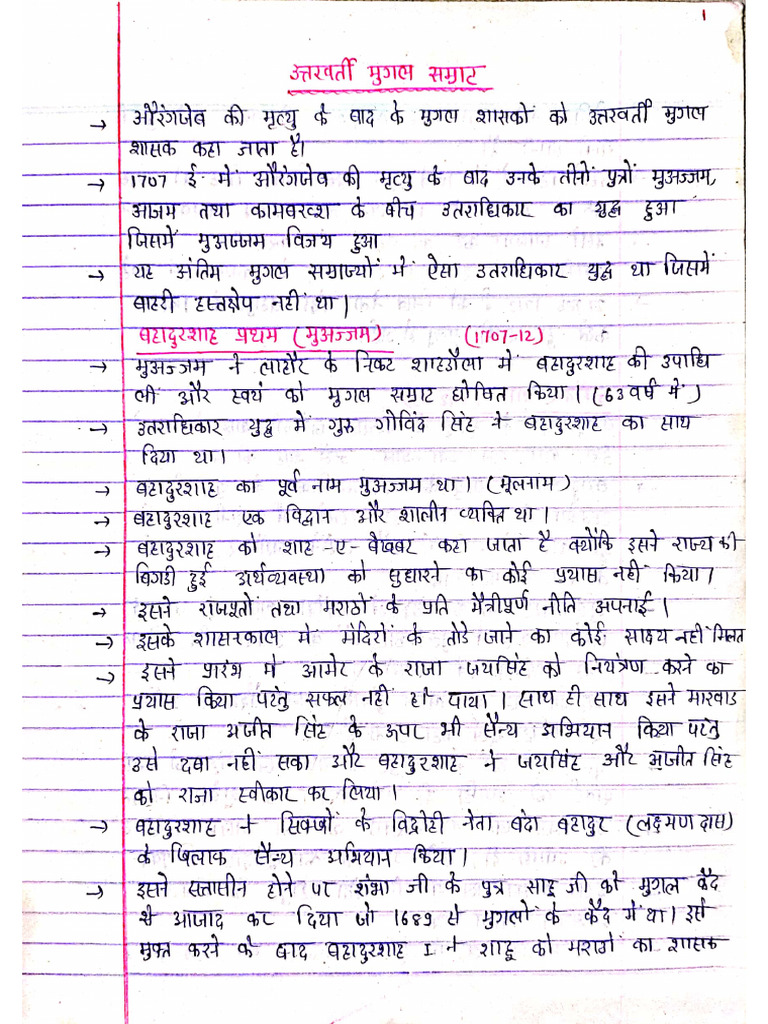 1
उत्तरवर्ती मुगल सम्राट
→ औरंगजेब की मृत्यु के बाद के मुगल शासकों को उत्तरवर्ती मुगल
शासक कहा जाता है।
→ 1707 ई में औरंगजेब की मृत्यु के बाद उनके तीनों पुत्रों मुअज्जम,
आजम तथा कामबख्श के बीच उतराधिकार का युद्ध हुआ
जिसमें मुअज्जम विजय हुआ
→ यह अंतिम मुगल सम्राज्यों में ऐसा उतराधिकार युद्ध था जिसमें
बाहरी हस्तक्षेप नहीं था।
बहादुरशाह प्रथम (मुअज्जम) (1707-12)
→ मुअज्जम ने लाहौर के निकट शाहदौला में बहादुरशाह की उपाधि
ली और स्वयं को मुगल सम्राट घोषित किया। (63 वर्ष में)
→ उतराधिकार युद्ध में गुरु गोविंद सिंह ने बहादुरशाह का साथ
दिया था।
→ बहादुरशाह का पूर्व नाम मुअज्जम था। (मूलनाम)
→ बहादुरशाह एक विद्वान और शालीन व्यक्ति था।
→ बहादुरशाह को शाह-ए-बेखबर कहा जाता है क्योंकि इसने राज्य की
बिगडी हुई अर्थव्यवस्था को सुधारने का कोई प्रयास नहीं किया।
→ इसने राजपूतों तथा मराठों के प्रति मैत्रीपूर्ण नीति अपनाई।
→ इसके शासनकाल में मंदिरों के तोडे जाने का कोई साक्ष्य नहीं मिलत
→ इसने प्रारंभ में आमेर के राजा जयसिंह को नियंत्रण करने का
प्रयास किया परंतु सफल नहीं हो पाया। साथ ही साथ इसने मारवाड
के राजा अजीत सिंह के ऊपर भी सैन्य अभियान किया परंतु
उसे दबा नहीं सका और बहादुरशाह ने जयसिंह और अजीत सिंह
को राजा स्वीकार कर लिया।
→ बहादुरशाह ने सिक्खों के विद्रोही नेता बंदा बहादुर (लक्ष्मण दास)
के खिलाक सैन्य अभियान किया।
→ इसने सत्तासीन होने पर शंभा जी के पुत्र साहू जी को मुगल कैद
से आजाद कर दिया जो 1689 से मुगलों के कैद में था। इसे
मुक्त करने के बाद बहादुरशाह I ने शाहू को मराठों का शासक